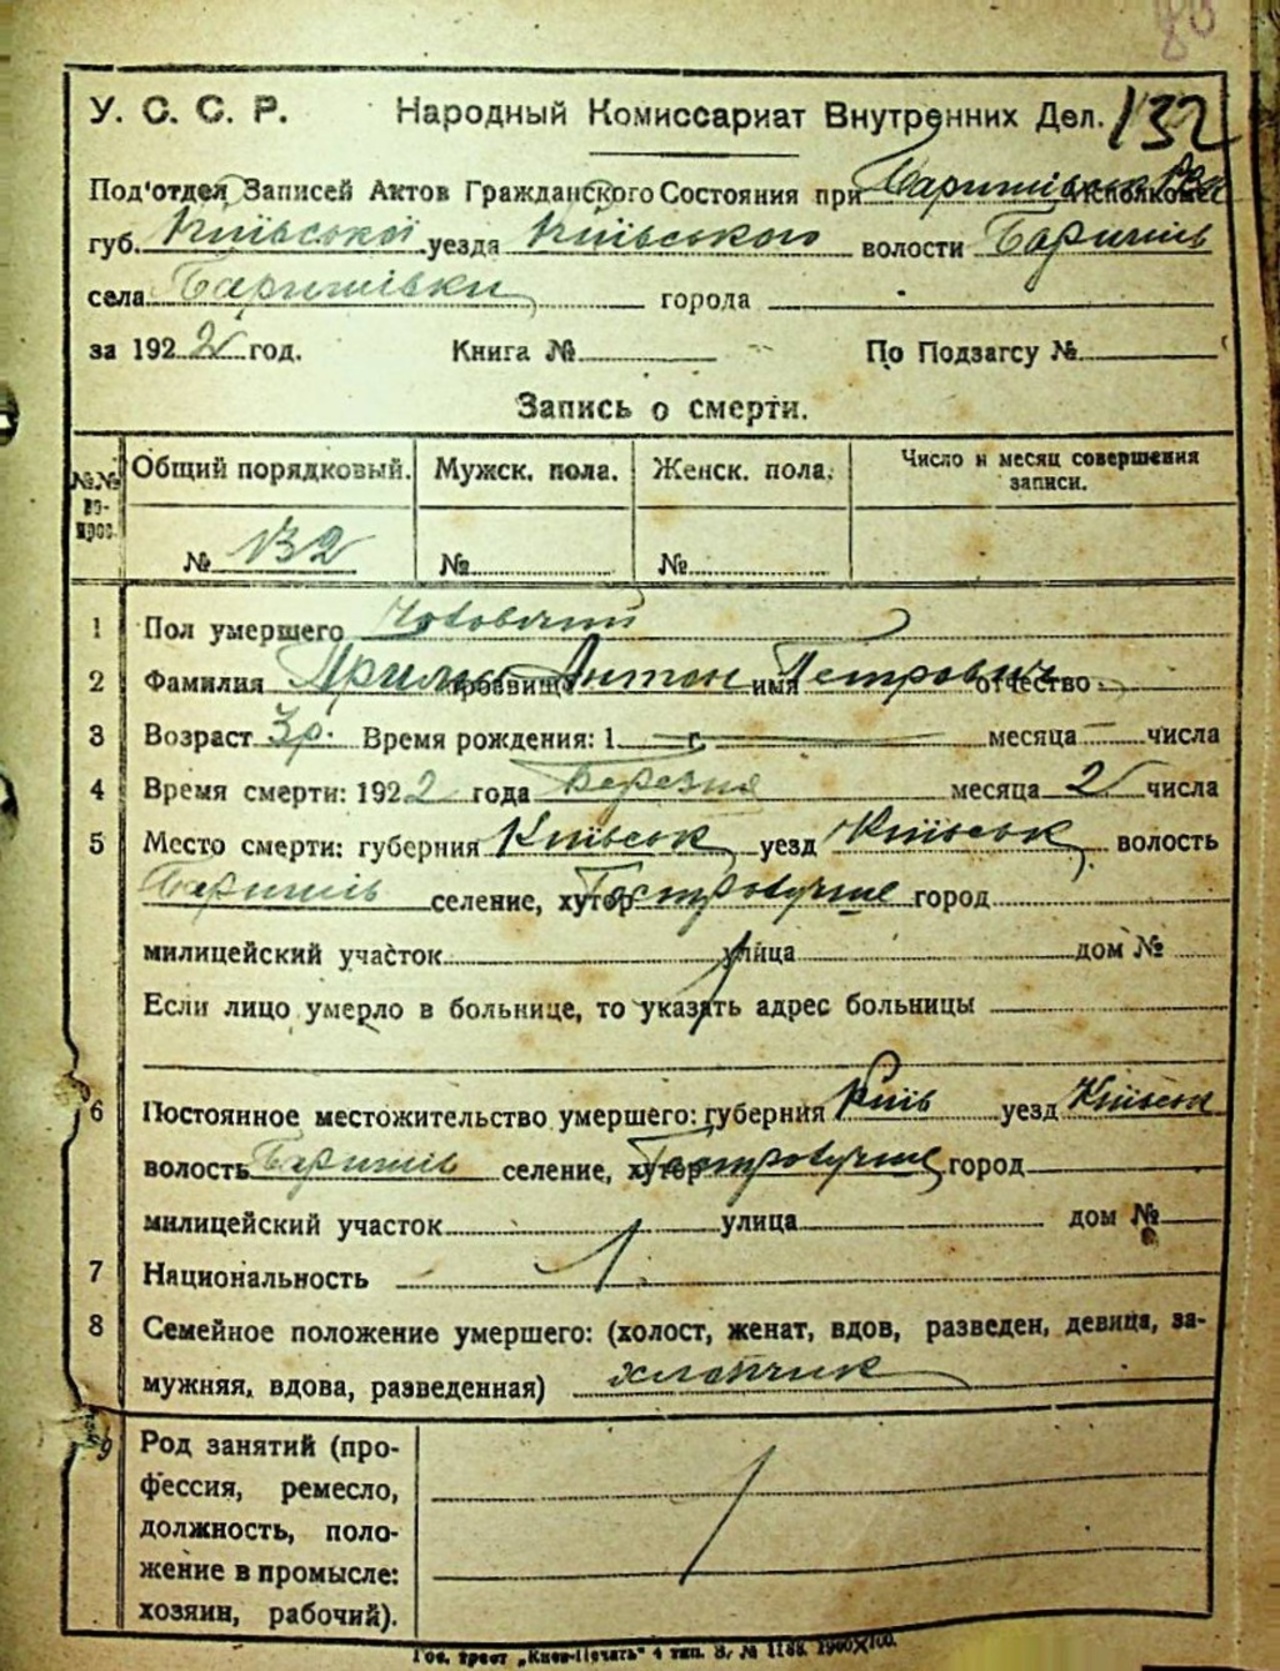 80
У. С. С. Р. Народный Комиссариат Внутренних Дел. 132
Под'отдел Записей Актов Гражданского Состояния при Баришівськ исполкоме
губ. Київської уезда Київського волости Баришів
села Баришівки города
за 1922 год. Книга № По Подзагсу №
Запись о смерти.
№№ вопрос. Общий порядковый. Мужск. пола. Женск. пола. Число и месяц совершения записи.
№ 132 № №
1 Пол умершего Чоловічий
2 Фамилия прозвище Антон имя Петрович отчество
3 Возраст 3 р. Время рождения: 1 г. месяца числа
4 Время смерти: 1922 года Березня месяца 2 числа
5 Место смерти: губерния Київськ уезд Київськ волость
Баришів селение, хутор город
милицейский участок улица дом №
Если лицо умерло в больнице, то указать адрес больницы
6 Постоянное местожительство умершего: губерния Київ уезд Київськ
волость Баришів селение, хутор город
милицейский участок улица дом №
7 Национальность
8 Семейное положение умершего: (холост, женат, вдов, разведен, девица, за-
мужняя, вдова, разведенная) хлопчик
9 Род занятий (про-
фессия, ремесло,
должность, поло-
жение в промысле:
хозяин, рабочий).
Гос. трест „Киев-Печать" 4 тип. З. № 1188.